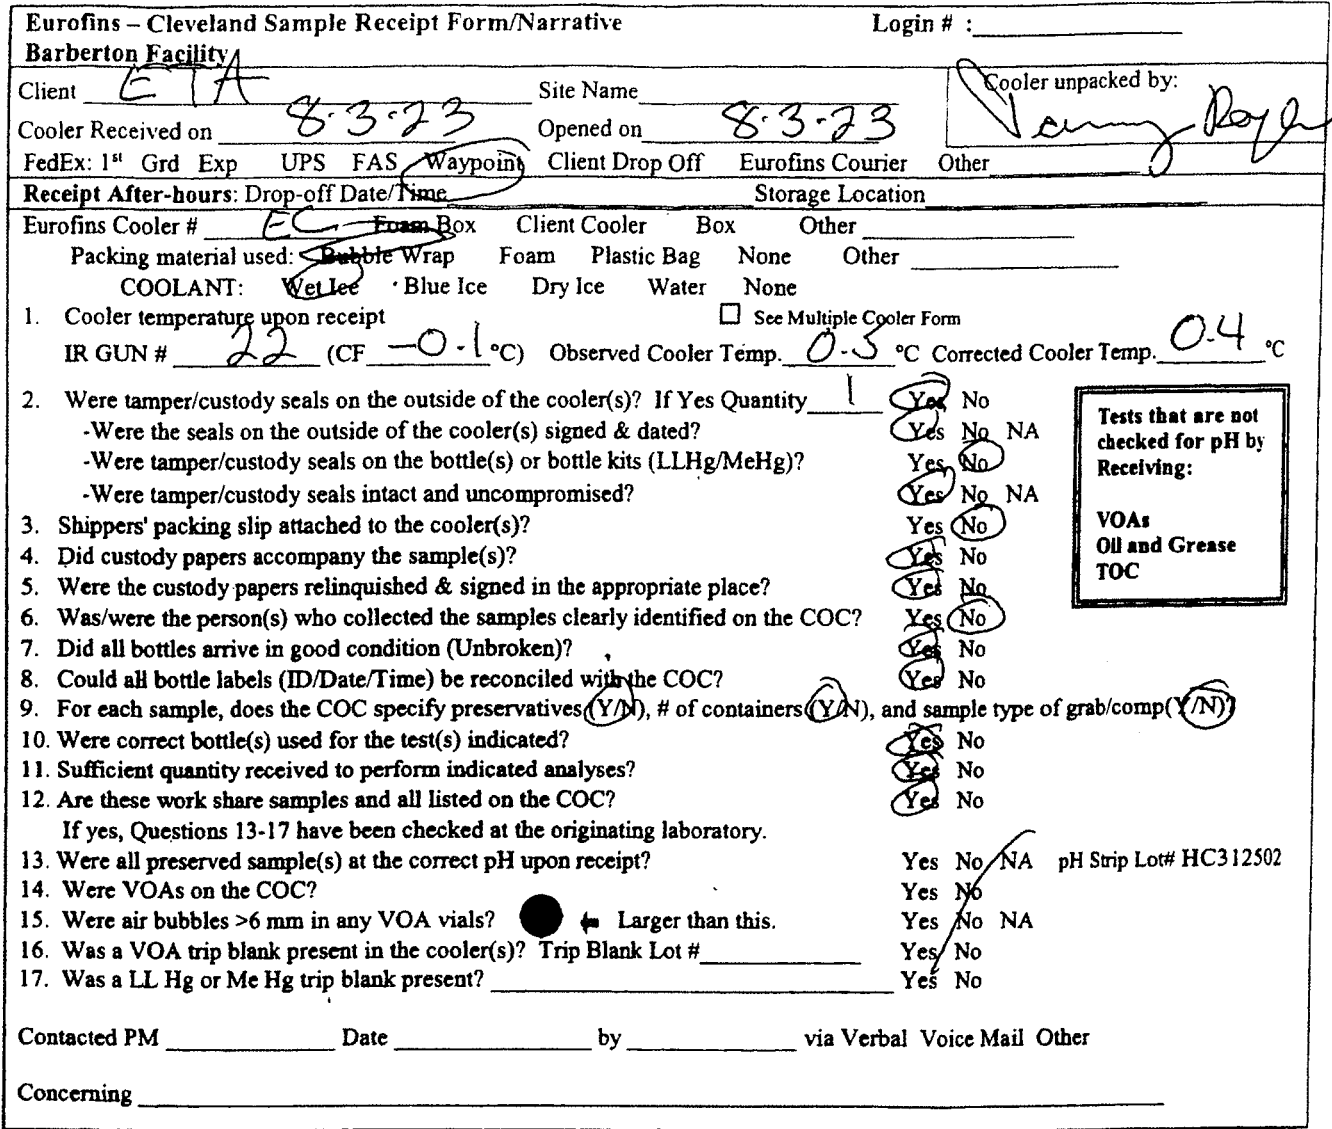 Eurofins – Cleveland Sample Receipt Form/Narrative Login # :
Barberton Facility
Client ETA Site Name Cooler unpacked by:
Cooler Received on 8-3-23 Opened on 8-3-23
FedEx: 1st Grd Exp UPS FAS Waypoint Client Drop Off Eurofins Courier Other
Receipt After-hours: Drop-off Date/Time Storage Location
Eurofins Cooler # EC Foam Box Client Cooler Box Other
Packing material used: Bubble Wrap Foam Plastic Bag None Other
COOLANT: Wet Ice Blue Ice Dry Ice Water None
1. Cooler temperature upon receipt ☐ See Multiple Cooler Form
IR GUN # 22 (CF -0.1 °C) Observed Cooler Temp. 0.5 °C Corrected Cooler Temp. 0.4 °C
2. Were tamper/custody seals on the outside of the cooler(s)? If Yes Quantity 1 Yes No
-Were the seals on the outside of the cooler(s) signed & dated? Yes No NA
-Were tamper/custody seals on the bottle(s) or bottle kits (LLHg/MeHg)? Yes No
-Were tamper/custody seals intact and uncompromised? Yes No NA
3. Shippers' packing slip attached to the cooler(s)? Yes No
4. Did custody papers accompany the sample(s)? Yes No
5. Were the custody papers relinquished & signed in the appropriate place? Yes No
6. Was/were the person(s) who collected the samples clearly identified on the COC? Yes No
7. Did all bottles arrive in good condition (Unbroken)? Yes No
8. Could all bottle labels (ID/Date/Time) be reconciled with the COC? Yes No
Tests that are not
checked for pH by
Receiving:
VOAs
Oil and Grease
TOC
9. For each sample, does the COC specify preservatives (Y/N), # of containers (Y/N), and sample type of grab/comp(Y/N)?
10. Were correct bottle(s) used for the test(s) indicated? Yes No
11. Sufficient quantity received to perform indicated analyses? Yes No
12. Are these work share samples and all listed on the COC? Yes No
If yes, Questions 13-17 have been checked at the originating laboratory.
13. Were all preserved sample(s) at the correct pH upon receipt? Yes No NA pH Strip Lot# HC312502
14. Were VOAs on the COC? Yes No
15. Were air bubbles >6 mm in any VOA vials? ● ← Larger than this. Yes No NA
16. Was a VOA trip blank present in the cooler(s)? Trip Blank Lot # Yes No
17. Was a LL Hg or Me Hg trip blank present? Yes No
Contacted PM Date by via Verbal Voice Mail Other
Concerning